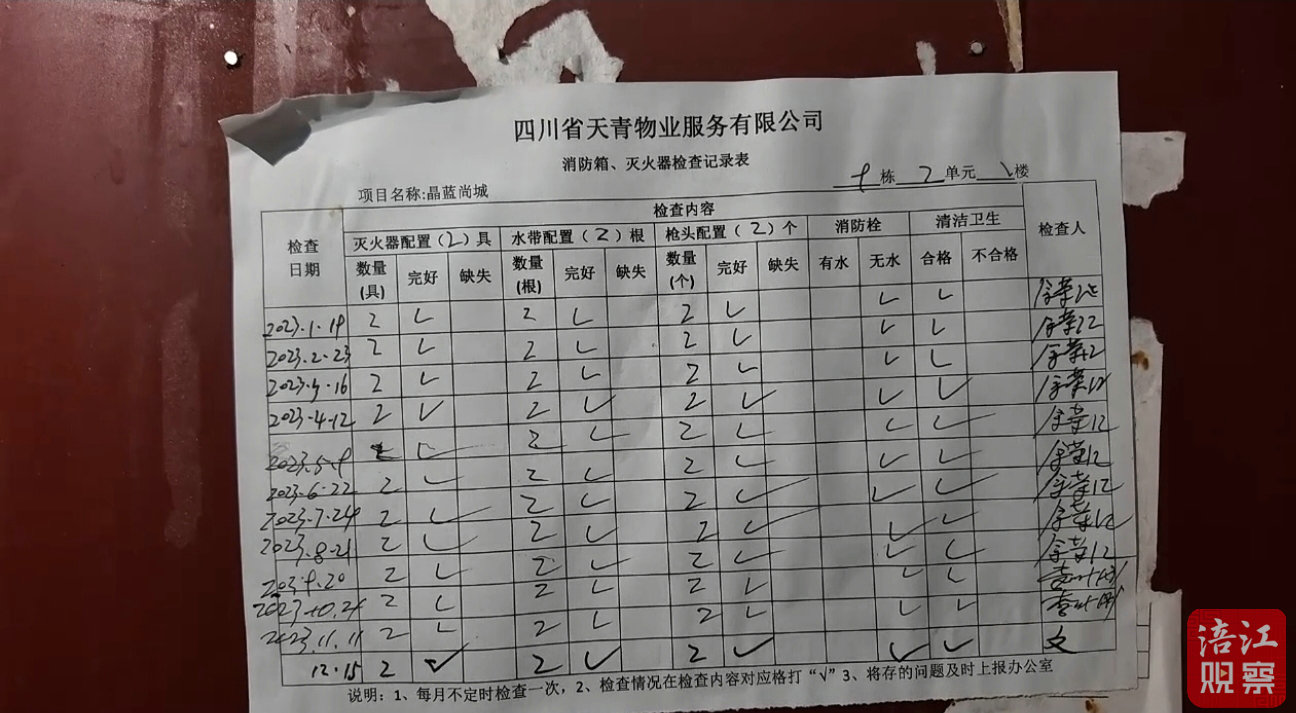 四川省天青物业服务有限公司
消防箱、灭火器检查记录表
项目名称:晶蓝尚城 栋 2 单元 楼
检查日期 检查内容 检查人
灭火器配置(2)具 水带配置(2)根 枪头配置(2)个 消防栓 清洁卫生
数量(具) 完好 缺失 数量(根) 完好 缺失 数量(个) 完好 缺失 有水 无水 合格 不合格
2023.1.19 2 ✓ 2 ✓ 2 ✓ ✓ ✓
2023.2.23 2 ✓ 2 ✓ 2 ✓ ✓ ✓
2 ✓ 2 ✓ 2 ✓ ✓ ✓
2023.4.12 2 ✓ 2 ✓ 2 ✓ ✓ ✓
2023.5.9 ✓ 2 ✓ 2 ✓ ✓ ✓
2023.6.22 2 ✓ 2 ✓ 2 ✓ ✓ ✓
2023.7.24 2 ✓ 2 ✓ 2 ✓ ✓ ✓
2023.8.21 2 ✓ 2 ✓ 2 ✓ ✓ ✓
2 ✓ 2 ✓ 2 ✓ ✓ ✓
2023.10.24 2 ✓ 2 ✓ 2 ✓ ✓ ✓
2023.11.11 2 ✓ 2 ✓ 2 ✓ ✓ ✓
12.15 2 ✓ 2 ✓ 2 ✓ ✓ ✓
说明：1、每月不定时检查一次，2、检查情况在检查内容对应格打“√”3、将存的问题及时上报办公室
涪江
观察